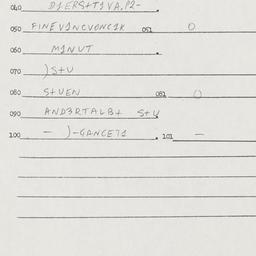 040
050 FINEVINCVONCIK 051 0
060 MINUT
070 )S+U
080 S+UEN 081 0
090 AND3RTALB+ S+U
100 - )-GANCE71 101 -